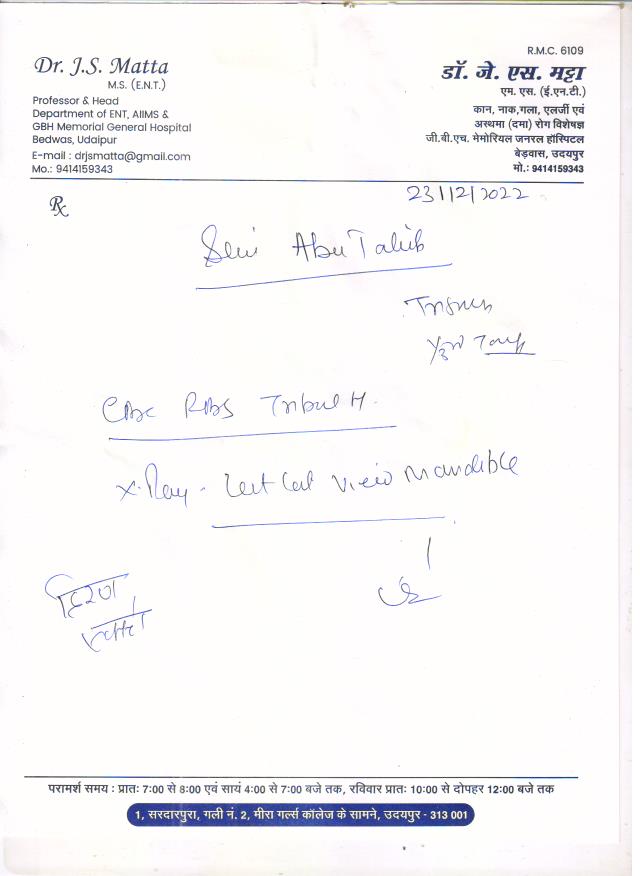 R.M.C. 6109
Dr. J.S. Matta
M.S. (E.N.T.)
Professor & Head
Department of ENT, AIIMS &
GBH Memorial General Hospital
Bedwas, Udaipur
E-mail : drjsmatta@gmail.com
Mo.: 9414159343
डॉ. जे. एस. मट्टा
एम. एस. (ई.एन.टी.)
कान, नाक,गला, एलर्जी एवं
अस्थमा (दमा) रोग विशेषज्ञ
जी.बी.एच. मेमोरियल जनरल हॉस्पिटल
बेड़वास, उदयपुर
मो.: 9414159343
Rx
23/12/2022
Abu Talib
CBC RBS
X-Ray - View Mandible
परामर्श समय : प्रातः 7:00 से 8:00 एवं सायं 4:00 से 7:00 बजे तक, रविवार प्रातः 10:00 से दोपहर 12:00 बजे तक
1, सरदारपुरा, गली नं. 2, मीरा गर्ल्स कॉलेज के सामने, उदयपुर - 313 001